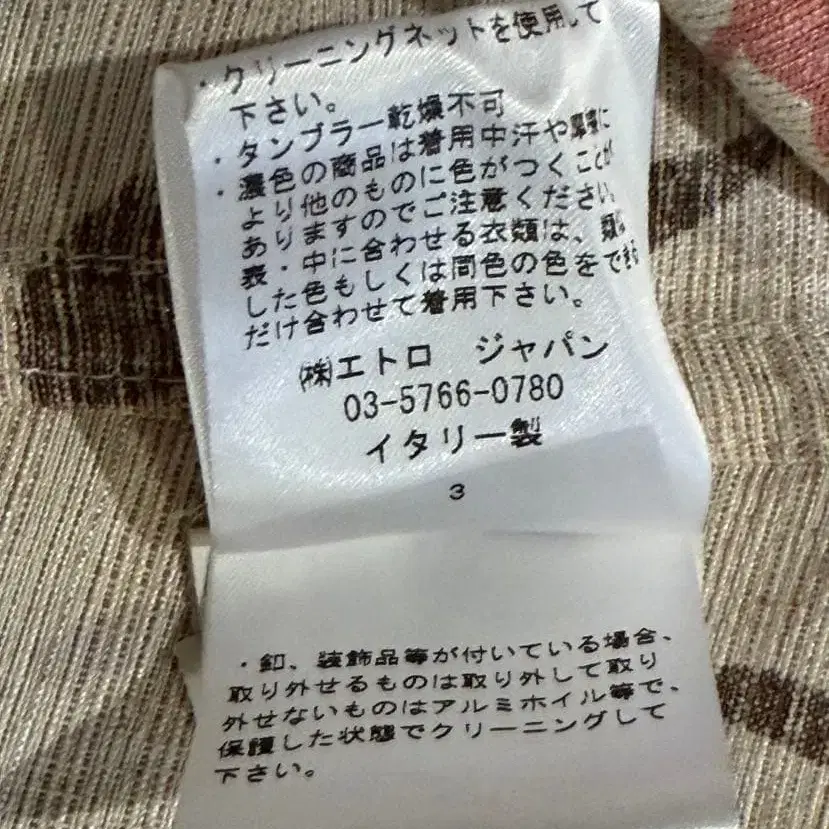 ・クリーニングネットを使用して
下さい。
・タンブラー乾燥不可
・濃色の商品は着用中汗や摩擦に
より他のものに色がつくことが
ありますのでご注意ください。
表・中に合わせる衣類は、類似
した色もしくは同色の色をできる
だけ合わせて着用下さい。
㈱エトロ ジャパン
03-5766-0780
イタリー製
3
・釦、装飾品等が付いている場合、
取り外せるものは取り外して取り
外せないものはアルミホイル等で、
保護した状態でクリーニングして
下さい。